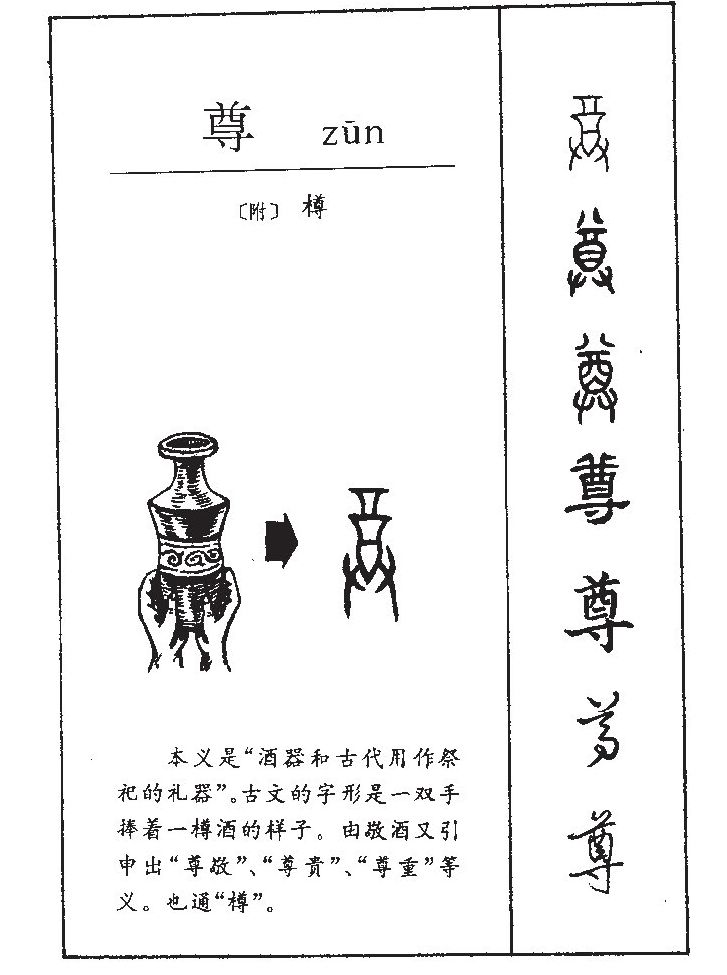 尊 zūn
〔附〕 樽
本义是“酒器和古代用作祭
祀的礼器”。古文的字形是一双手
捧着一樽酒的样子。由敬酒又引
申出“尊敬”、“尊贵”、“尊重”等
义。也通“樽”。
尊
尊
尊
尊
尊
尊
尊